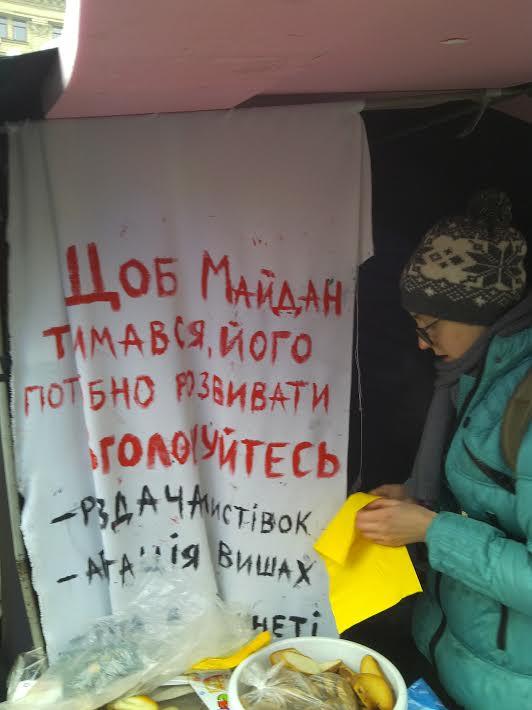 ЩОБ МАЙДАН
ТИМАВСЯ, ЙОГО
ПОТІБНО РОЗВИВАТИ
ЗГОЛОШУЙТЕСЬ
– РЗДАЧА ЛИСТІВОК
– АГІТАЦІЯ ВИШАХ
НЕТІ